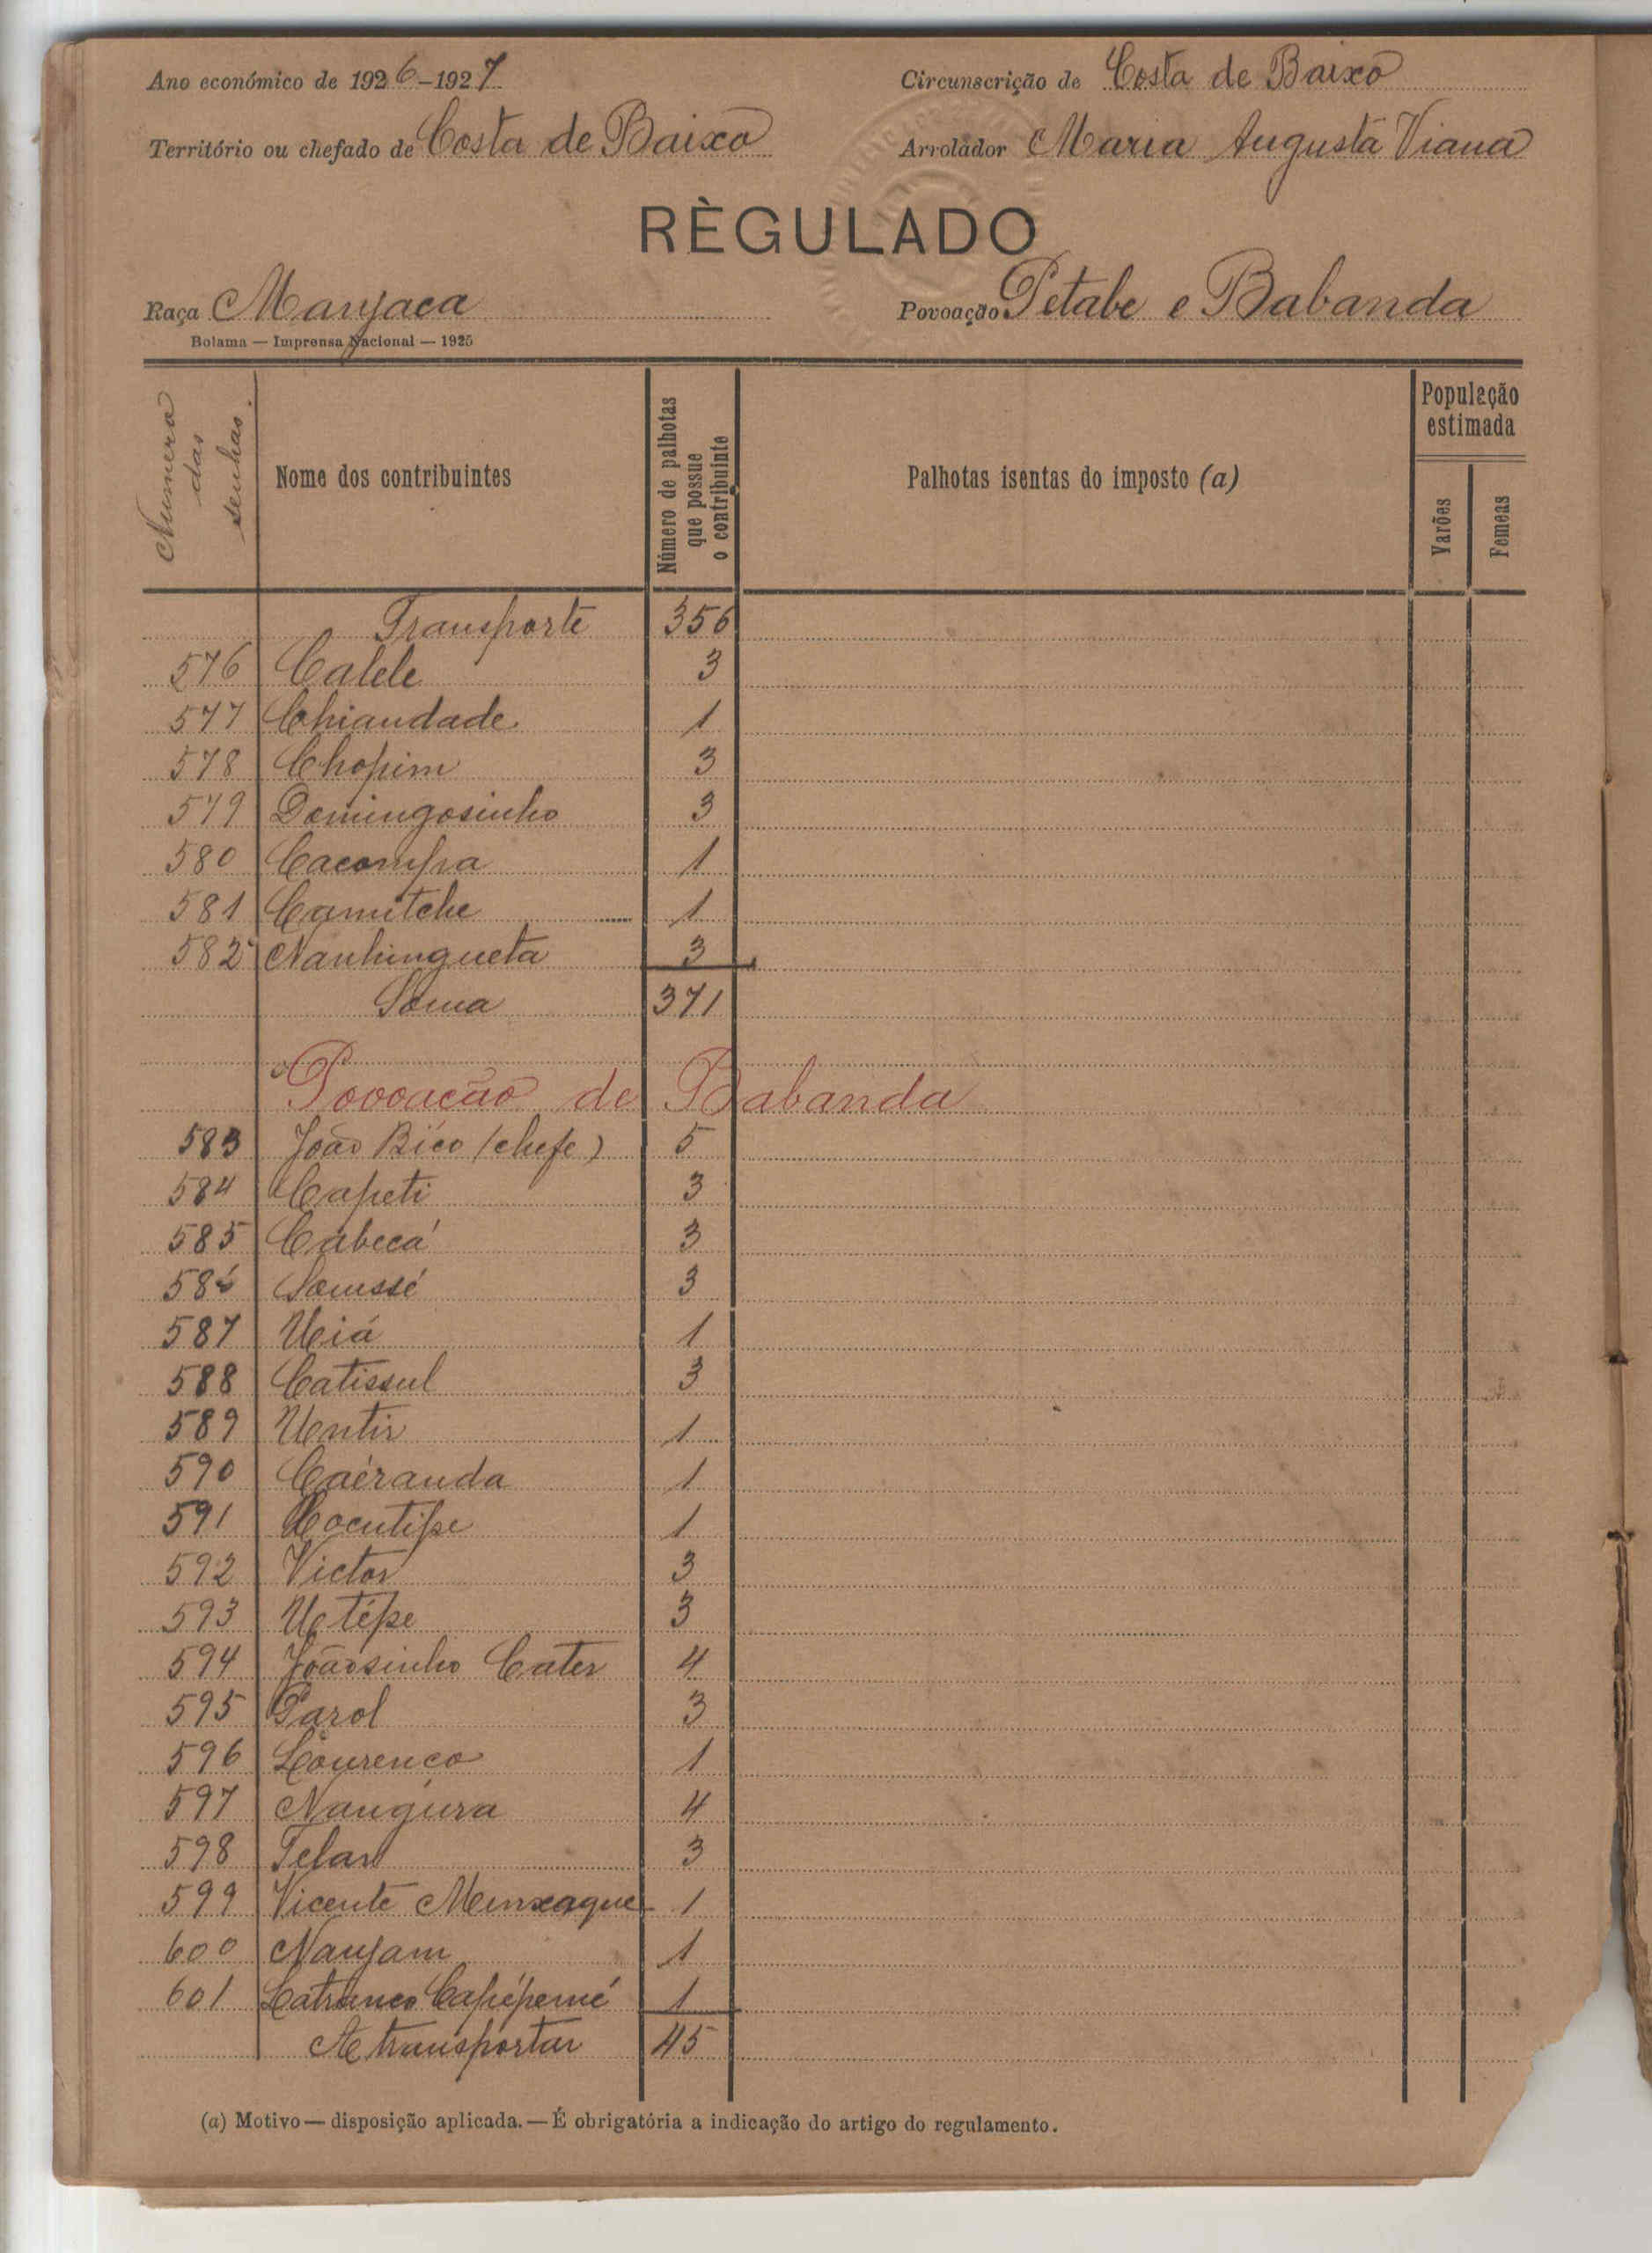 Ano económico de 1926-1927 Circunscrição de Costa de Baixo
Território ou chefado de Costa de Baixo Arrolador Maria Augusta Viana
RÈGULADO
Raça Manjaca Povoação Petabe e Babanda
Bolama — Imprensa Nacional — 1925
Numero das senhas.
Nome dos contribuintes
Número de palhotas que possue o contribuinte
Palhotas isentas do imposto (a)
População estimada
Varões
Femeas
Transporte 356
576 Calele 3
577 Chiandade 1
578 Chopim 3
579 Domingosinho 3
580 Cacompra 1
581 Camitche 1
582 Nanhingueta 3
Soma 371
Povoação de Babanda
583 João Bico (chefe) 5
584 Capeti 3
585 Cabecá 3
586 Samssé 3
587 Uiá 1
588 Catissul 3
589 Untir 1
590 Caéranda 1
591 Cocutipe 1
592 Victor 3
593 Utépe 3
594 Joãosinho Cater 4
595 Parol 3
596 Lourenço 1
597 Nangura 4
598 Telar 3
599 Vicente Menxaque 1
600 Nanjam 1
601 Capépemé 1
A transportar 45
(a) Motivo — disposição aplicada. — É obrigatória a indicação do artigo do regulamento.